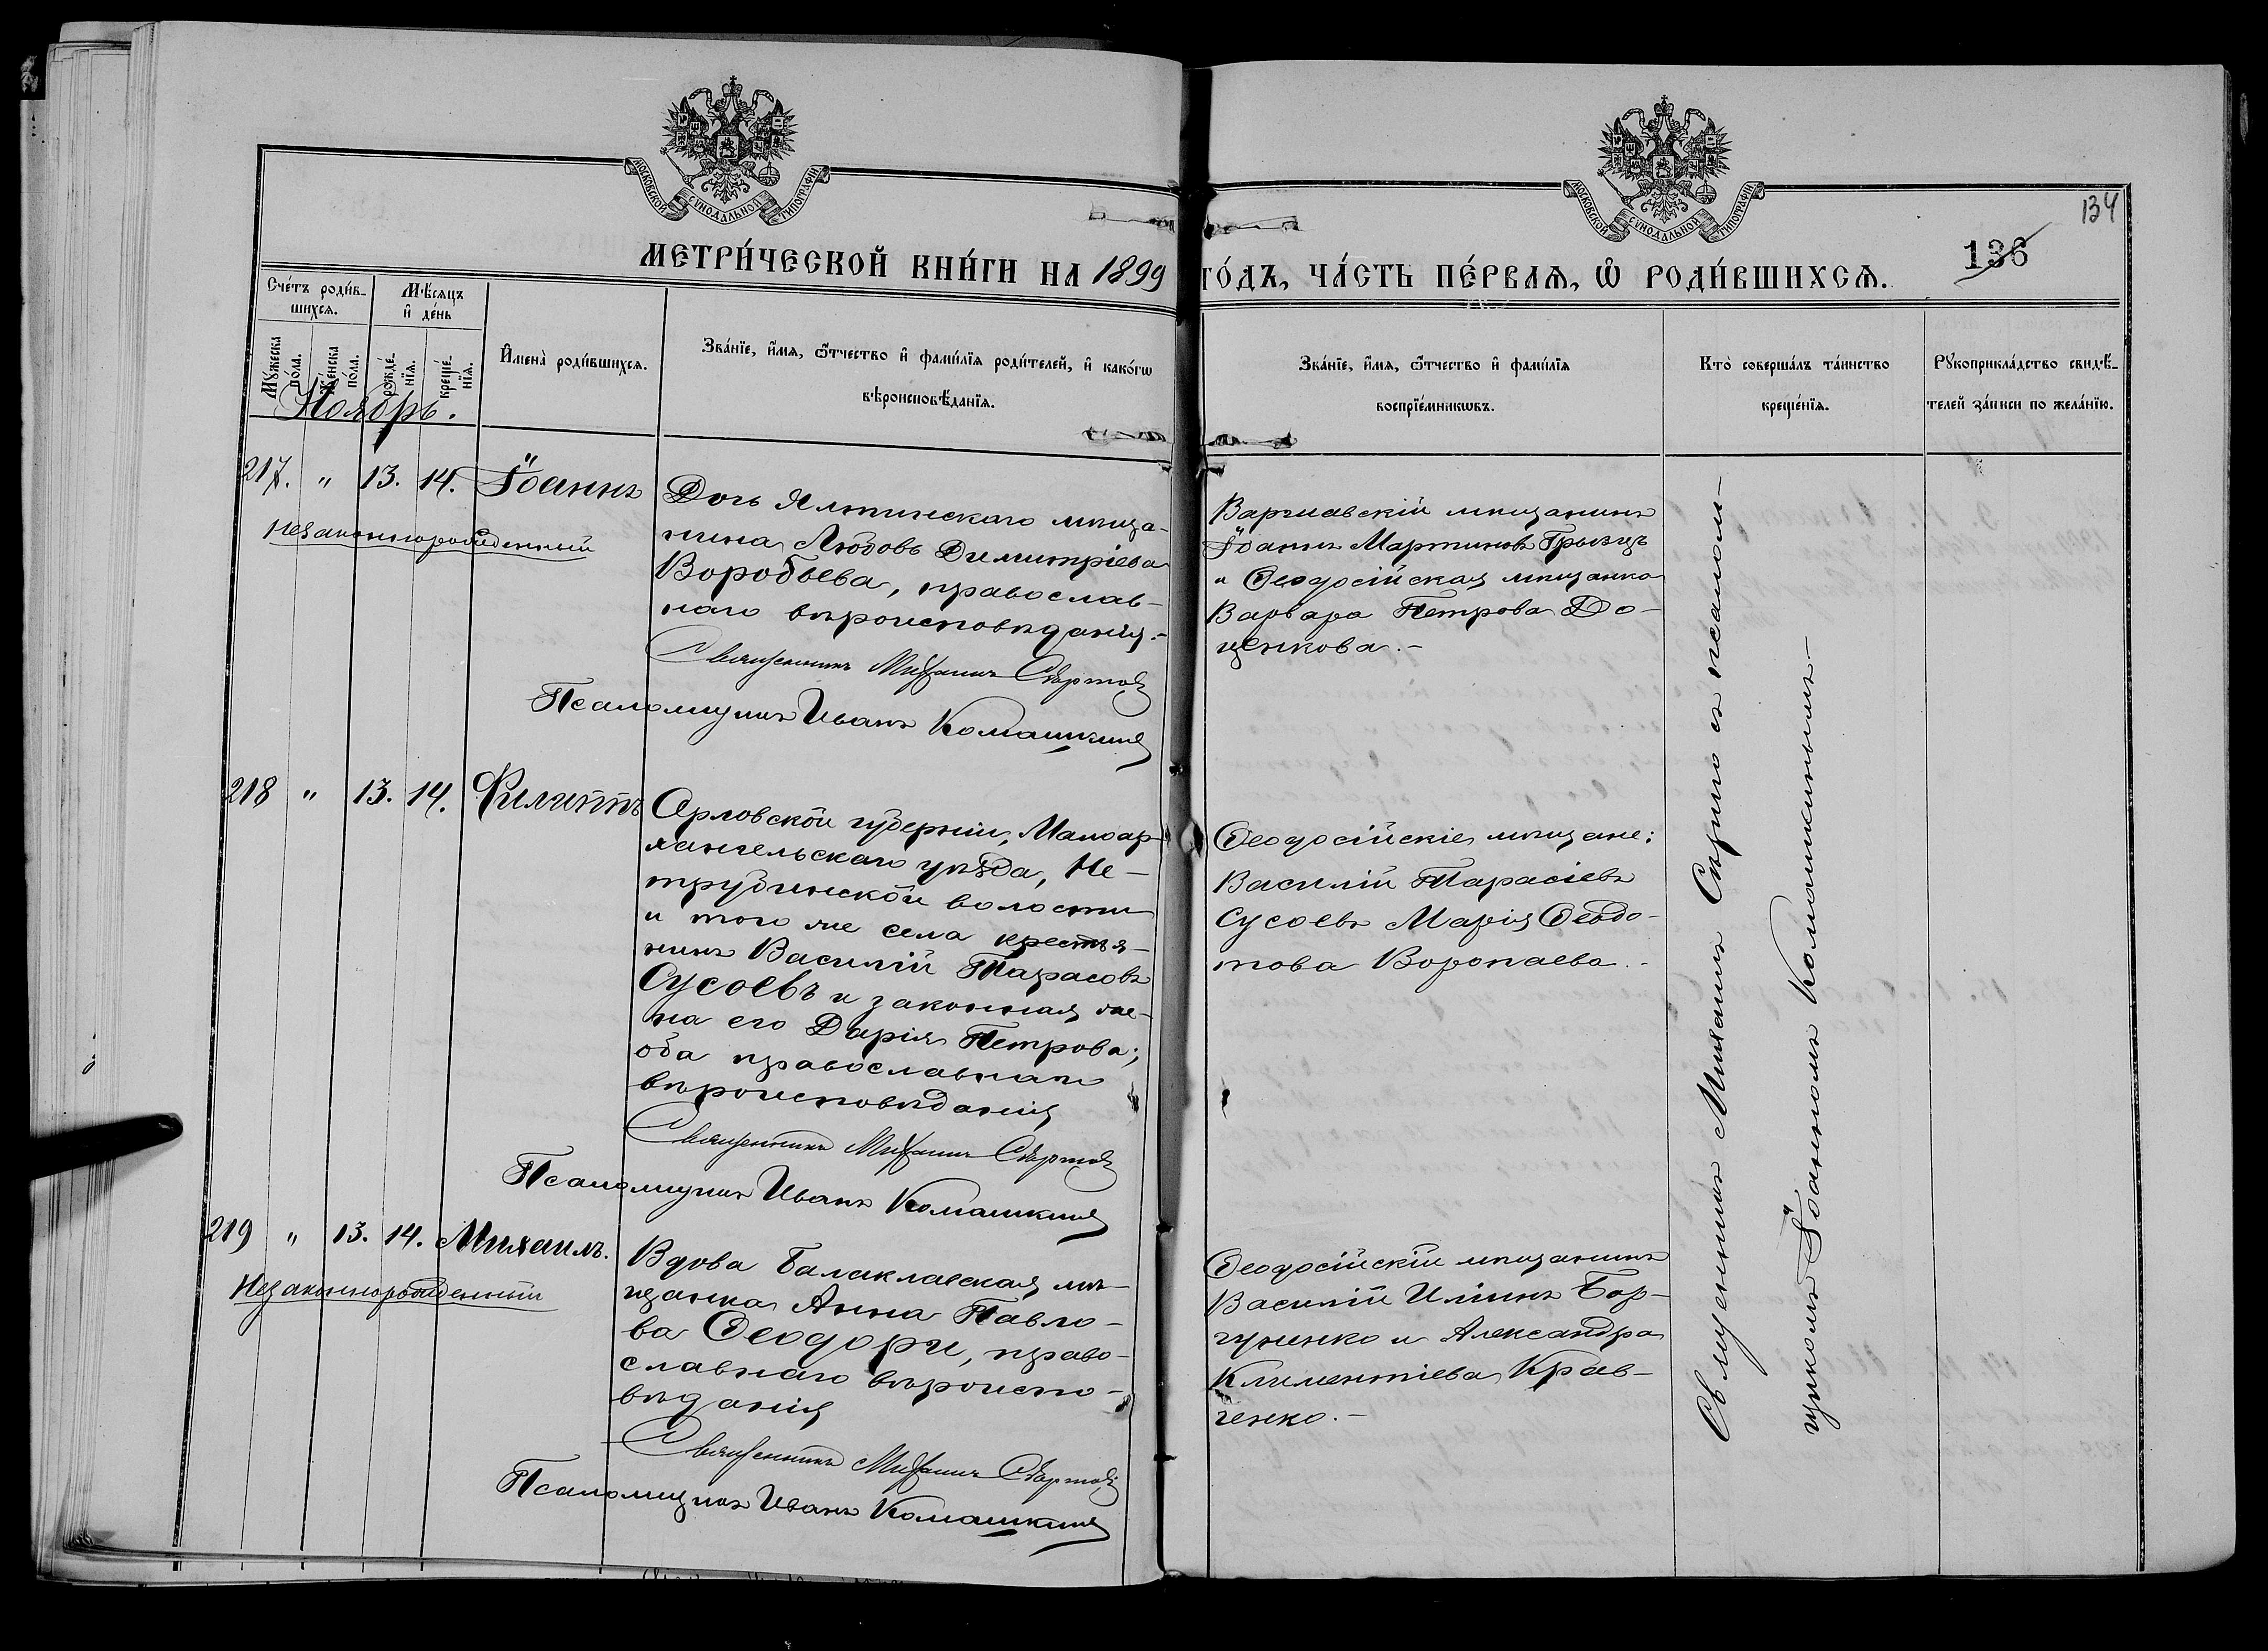 МОСКОВСКОЙ СѴНОДАЛЬНОЙ ТИПОГРАФІИ
МОСКОВСКОЙ СѴНОДАЛЬНОЙ ТИПОГРАФІИ
134
136
МЕТРИ́ЧЕСКОЙ КНИ́ГИ НА 1899 ГО́ДЪ, ЧА́СТЬ ПЕ́РВАЯ, Ѡ҆ РОДИ́ВШИХСЯ.
Сче́тъ роди́в-
шихся.
Мѣ́сяцъ
и҆ де́нь
Му́жеска
по́ла.
Же́нска
по́ла.
рожде́-
нїя.
креще́-
нїя.
И҆мена̀ роди́вшихся.
Зва́нїе, и҆́мя, ѻ҆́тчество и҆ фами́лїя роди́телей, и҆ како́гѡ
вѣроисповѣ́данїя.
Зва́нїе, и҆́мя, ѻ҆́тчество и҆ фами́лїя
воспрїе́мникѡвъ.
Кто̀ соверша́лъ та́инство
креще́нїя.
Рукоприкла́дство свидѣ́-
телей за́писи по жела́нїю.
Ноябрь.
217. " 13. 14. Іоаннъ
Незаконнорожденный
Дочь Ялтинскаго мѣща-
нина Любовь Димитріева
Воробьева, православ-
наго вѣроисповѣданія.-
Священникъ Михаилъ
Псаломщикъ Иванъ Комашкинъ
Варшавскій мѣщанинъ
Іоаннъ Мартиновъ
и Ѳеодосійская мѣщанка
Варвара Петрова До-
ценкова.-
218 " 13. 14. Филиппъ
Орловской губерніи, Малоар-
хангельскаго уѣзда, Не-
трубинской волости
и того же села крестья-
нинъ Василій Тарасовъ
Сусоевъ и законная же-
на его Дарія Петрова;
оба православнаго
вѣроисповѣданія
Священникъ Михаилъ
Псаломщикъ Иванъ Комашкинъ
Ѳеодосійскіе мѣщане:
Василій Тарасіевъ
Сусоевъ Марія Ѳеодо-
това Воропаева.-
219 " 13. 14. Михаилъ.
Незаконнорожденный
Вдова Балаклавская мѣ-
щанка Анна Павло-
ва Ѳеодори, право-
славнаго вѣроиспо-
вѣданія
Священникъ Михаилъ
Псаломщикъ Иванъ Комашкинъ
Ѳеодосійскій мѣщанинъ
Василій Илiинъ
и Александра
Климентіева Крав-
ченко.-
Священникъ Михаилъ с псалом-
щикомъ Іоанномъ Комашкинымъ.-